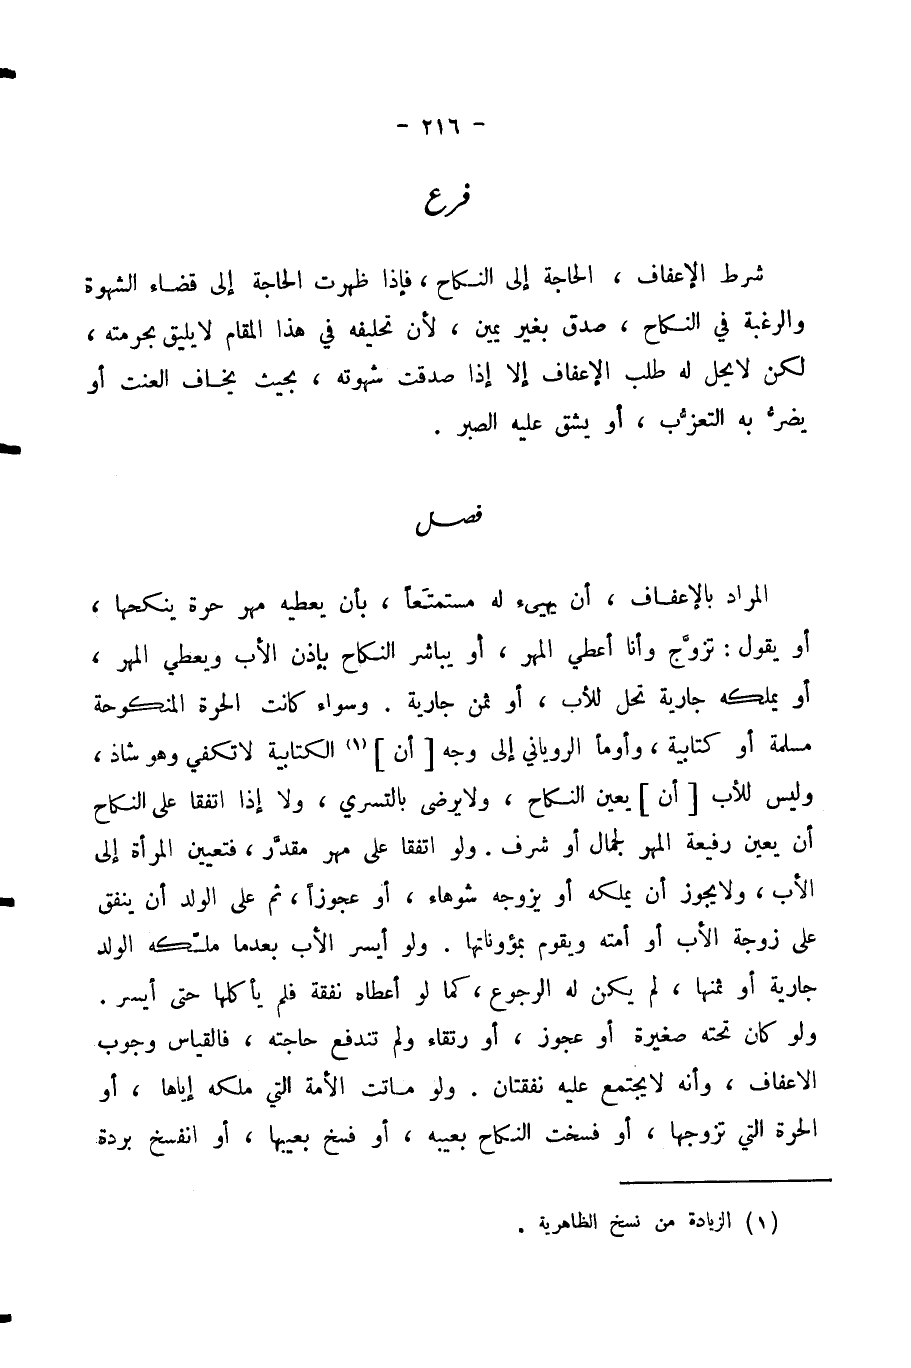 - ٢١٦ -
فرع
شرط الإعفاف ، الحاجة إلى النكاح ، فإذا ظهرت الحاجة إلى قضاء الشهوة
والرغبة في النكاح ، صدق بغير يمين ، لأن تحليفه في هذا المقام لايليق بجرمته ،
لكن لايحل له طلب الإعفاف إلا إذا صدقت شهوته ، بحيث يخاف العنت أو
يضرُّ به التعزُّب ، أو يشق عليه الصبر .
فصل
المراد بالإعفاف ، أن يهيىء له مستمتَعاً ، بأن يعطيه مهر حرة ينكحها ،
أو يقول : تزوَّج وأنا أعطي المهر ، أو يباشر النكاح بإذن الأب ويعطي المهر ،
أو يملكه جارية تحل للأب ، أو ثمن جارية . وسواء كانت الحرة المنكوحة
مسلمة أو كتابية ، وأومأ الروياني إلى وجه [ أن ] (١) الكتابية لاتكفي وهو شاذ ،
وليس للأب [ أن ] يعين النكاح ، ولايرضى بالتسري ، ولا إذا اتفقا على النكاح
أن يعين رفيعة المهر لجمال أو شرف . ولو اتفقا على مهر مقدَّر ، فتعيين المرأة إلى
الأب ، ولايجوز أن يملكه أو يزوجه شوهاء ، أو عجوزاً ، ثم على الولد أن ينفق
على زوجة الأب أو أمته ويقوم بمؤوناتها . ولو أيسر الأب بعدما ملَّكه الولد
جارية أو ثمنها ، لم يكن له الرجوع ، كما لو أعطاه نفقة فلم يأكلها حتى أيسر .
ولو كان تحته صغيرة أو عجوز ، أو رتقاء ولم تندفع حاجته ، فالقياس وجوب
الاعفاف ، وأنه لايجتمع عليه نفقتان . ولو ماتت الأمة التي ملكه إياها ، أو
الحرة التي تزوجها ، أو فسخت النكاح بعيبه ، أو فسخ بعيبها ، أو انفسخ بردة
(١) الزيادة من نسخ الظاهرية .